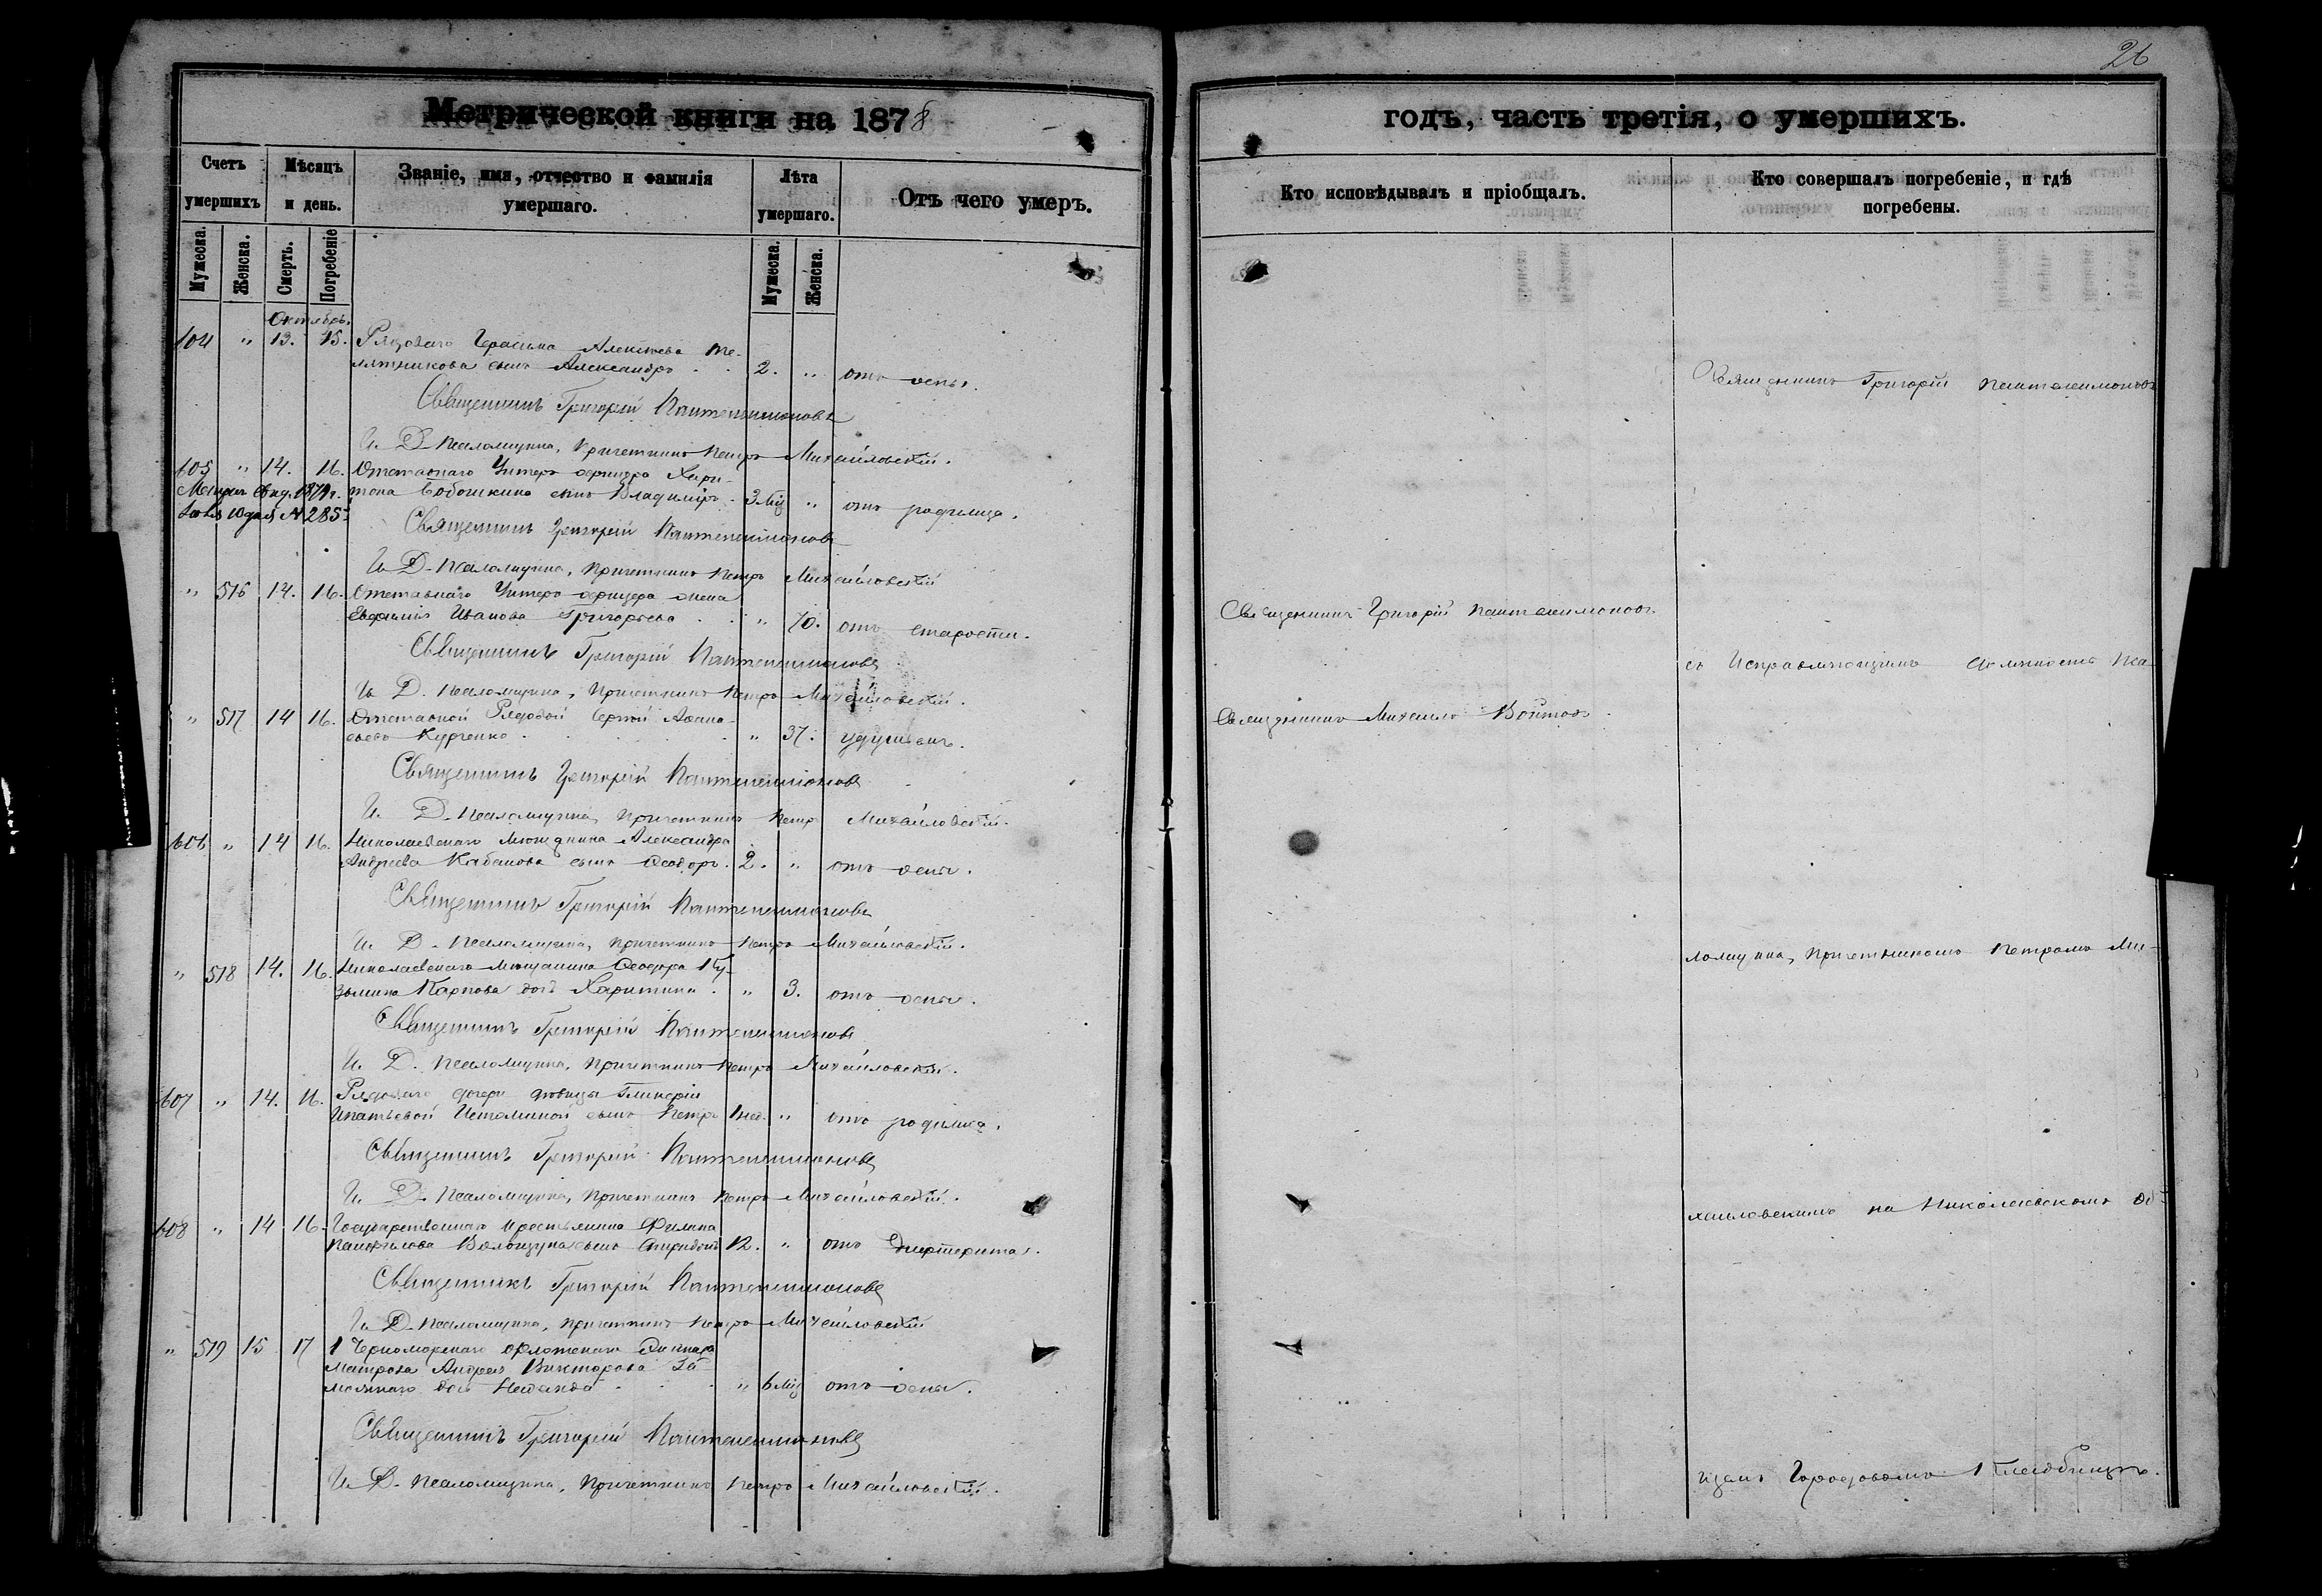 26
Метрической книги на 1878
годъ, часть третія, о умершихъ.
Счетъ умершихъ
Мѣсяцъ и день.
Званіе, имя, отчество и фамилія умершаго.
Лѣта умершаго.
Отъ чего умеръ.
Кто исповѣдывалъ и пріобщалъ.
Кто совершалъ погребеніе, и гдѣ погребены.
Мужеска.
Женска.
Смерть.
Погребеніе
Мужеска.
Женска.
Октябрь.
604 " 13. 15. Рядоваго Герасима Алексѣева Те-
лятникова сынъ Александръ . . 2. " отъ оспы.
Священникъ Григорій Пантелеимоновъ
И. Д. Псаломщика, Причетникъ Петръ Михайловскій.
605 " 14. 16. Отставнаго Унтеръ офицера Хари-
тона сынъ Владиміръ . 3 Мѣс " отъ родимца.
Метрич свид. 1879 г.
Священникъ Григорій Пантелеимоновъ
И. Д. Псаломщика, Причетникъ Петръ Михайловскій
" 516 14. 16. Отставнаго Унтеръ офицера жена
Евфимія Иванова Григорьева . . " 70. отъ старости.
Священникъ Григорій Пантелеимоновъ
И. Д. Псаломщика, Причетникъ Петръ Михайловскій.
" 517 14 16. Отставной Рядовой Сергѣй Аѳана-
сьевъ Курченко . . . . " 37. удушьемъ.
Священникъ Григорій Пантелеимоновъ
И. Д. Псаломщика, Причетникъ Петръ Михайловскій.
606 " 14 16. Николаевскаго Мѣщанина Александра
Андреева Кабанова сынъ Ѳеодоръ . 2. " отъ оспы.
Священникъ Григорій Пантелеимоновъ
И. Д. Псаломщика, Причетникъ Петръ Михайловскій.
" 518 14. 16. Николаевскаго Мѣщанина Ѳеодора Ку-
зьмина Карпова дочь Харитина . " 3. отъ оспы.
Священникъ Григорій Пантелеимоновъ
И. Д. Псаломщика, Причетникъ Петръ Михайловскій.
607 " 14. 16. Рядоваго дочери дѣвицы Гликеріи
Игнатьевой Истоминой сынъ Петръ 1 нед. " отъ родимца.
Священникъ Григорій Пантелеимоновъ
И. Д. Псаломщика, Причетникъ Петръ Михайловскій.
608 " 14 16. Государственнаго крестьянина Филипа
сынъ Спиридонъ 12. " отъ Дифтерита.
Священникъ Григорій Пантелеимоновъ
И. Д. Псаломщика, Причетникъ Петръ Михайловскій
" 519 15 17 1 Черноморскаго Флотскаго Экипажа
матроса Андрея Викторова
дочь . . . " 6 Мѣс отъ оспы.
Священникъ Григорій Пантелеимоновъ
И. Д. Псаломщика, Причетникъ Петръ Михайловскій.
Священникъ Григорій Пантелеимоновъ
Священникъ Григорій Пантелеимоновъ.
съ Исправляющимъ должность Пса-
Священникъ Михаилъ Войтовъ.
ломщика, Причетникомъ Петромъ Ми-
хайловскимъ на Николаевскомъ Об-
щемъ Городовомъ Кладбищѣ.